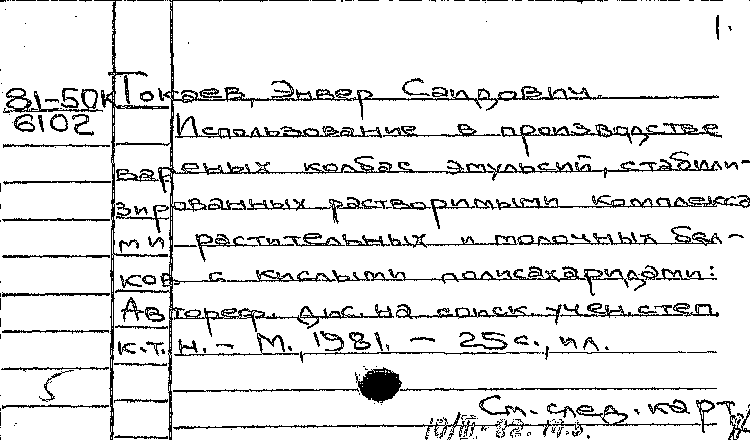 1.
81-50к Токаев, Энвер Саидович.
6102 Использование в производстве
вареных колбас эмульсий, стабили-
зированных растворимыми комплекса
ми растительных и молочных бел-
ков с кислыми полисахаридами:
Автореф. дис. на соиск. учен. степ.
к.т.н. - М., 1981. - 25с., ил.
5
См. след. карт.